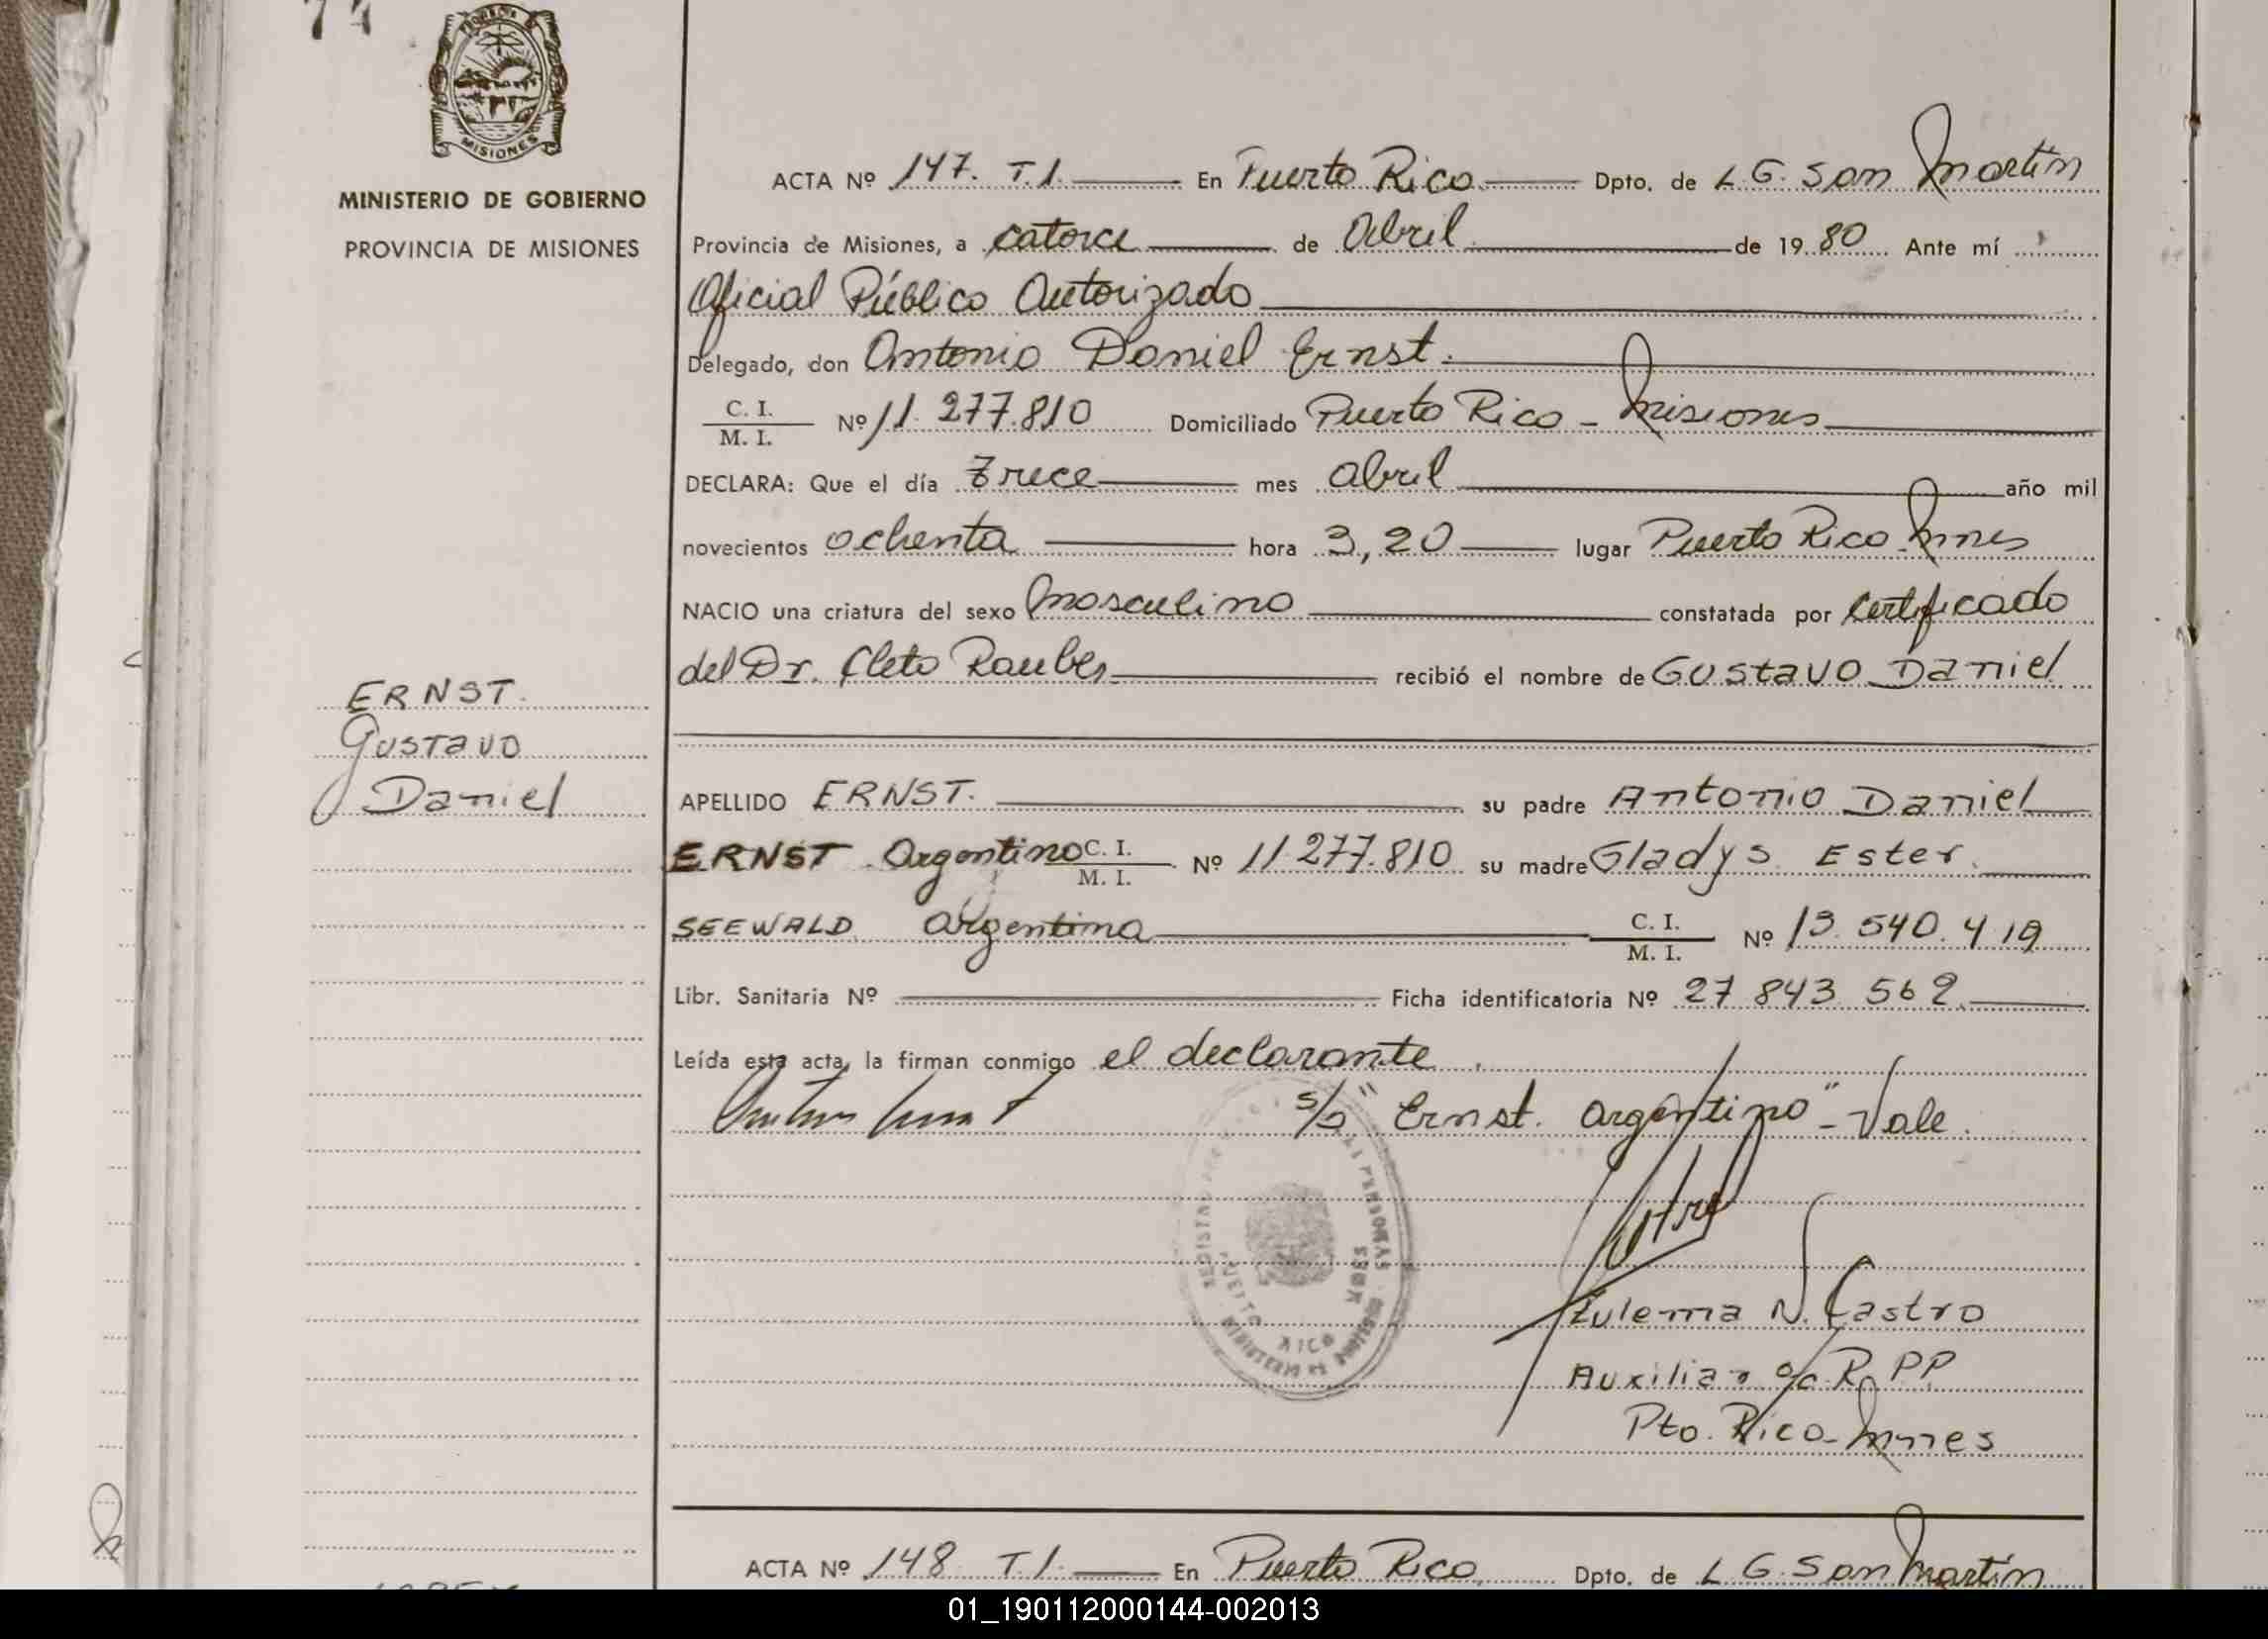 74
PROVINCIA DE
MISIONES
MINISTERIO DE GOBIERNO
PROVINCIA DE MISIONES
ERNST.
Gustavo
Daniel
ACTA Nº 147. T.1. En Puerto Rico Dpto. de L. G. San Martín
Provincia de Misiones, a catorce de Abril de 19 80 Ante mí
Oficial Público Autorizado
Delegado, don Antonio Daniel Ernst.
C. I.
M. I. Nº 11.277.810 Domiciliado Puerto Rico - Misiones
DECLARA: Que el día trece mes abril año mil
novecientos ochenta hora 3,20 lugar Puerto Rico Mnes
NACIO una criatura del sexo masculino constatada por certificado
del Dr. Cleto Rauber recibió el nombre de Gustavo Daniel
APELLIDO ERNST. su padre Antonio Daniel
ERNST Argentino C. I. M. I. Nº 11.277.810 su madre Gladys Ester.
SEEWALD argentina C. I. M. I. Nº 13.540.419
Libr. Sanitaria Nº Ficha identificatoria Nº 27 843 562
Leída esta acta, la firman conmigo el declarante
s/r "Ernst. argentino" - Vale.
PUERTO RICO
Zulema N. Castro
Auxiliar a/c R. PP
Pto. Rico - Mnes
ACTA Nº 148 T.1. En Puerto Rico Dpto. de L G. San Martín
01_190112000144-002013